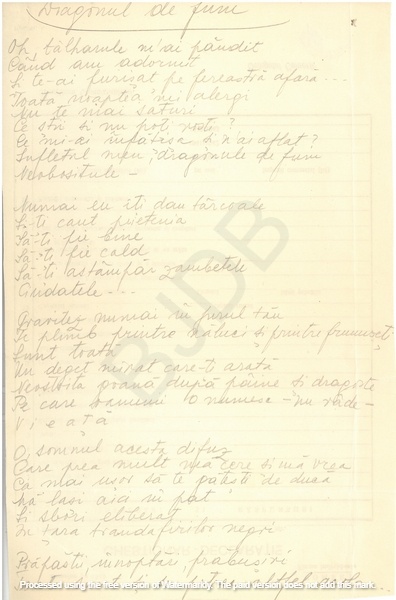 Dragonul de fum
Oh, tâlharule m'ai pândit
Când am adormit
Și te-ai furișat pe fereastră afară...
Toată noaptea mi alergi
Nu te mai saturi
Ce știi și nu poți rosti?
Ce mi-ai înfățișa și n'ai aflat?
Sufletul meu, dragonule de fum
Neobositule -
Numai eu îți dau târcoale
Și-ți caut prietenia
Să-ți fie bine
Să-ți fie cald
Să-ți astâmpăr zâmbetele
Ciudatele...
Gravitez numai în jurul tău
Te plimb printre năluci și printre frumuseți
Sunt toată
Un deget mirat care-ți arată
Neostoita goană după pâine și dragoste
Pe care oamenii o numesc - nu râde -
Vieață
O, somnul acesta difuz
Care prea mult mă cere și mă vrea
Ca mai ușor să te gătești de ducă
Mă lași aici în pat
Și sbori eliberat
În țara trandafirilor negri
Prăfăști, înoptări, prăbușiri
BJDB
Processed using the free version of Watermarkly. The paid version does not add this mark.